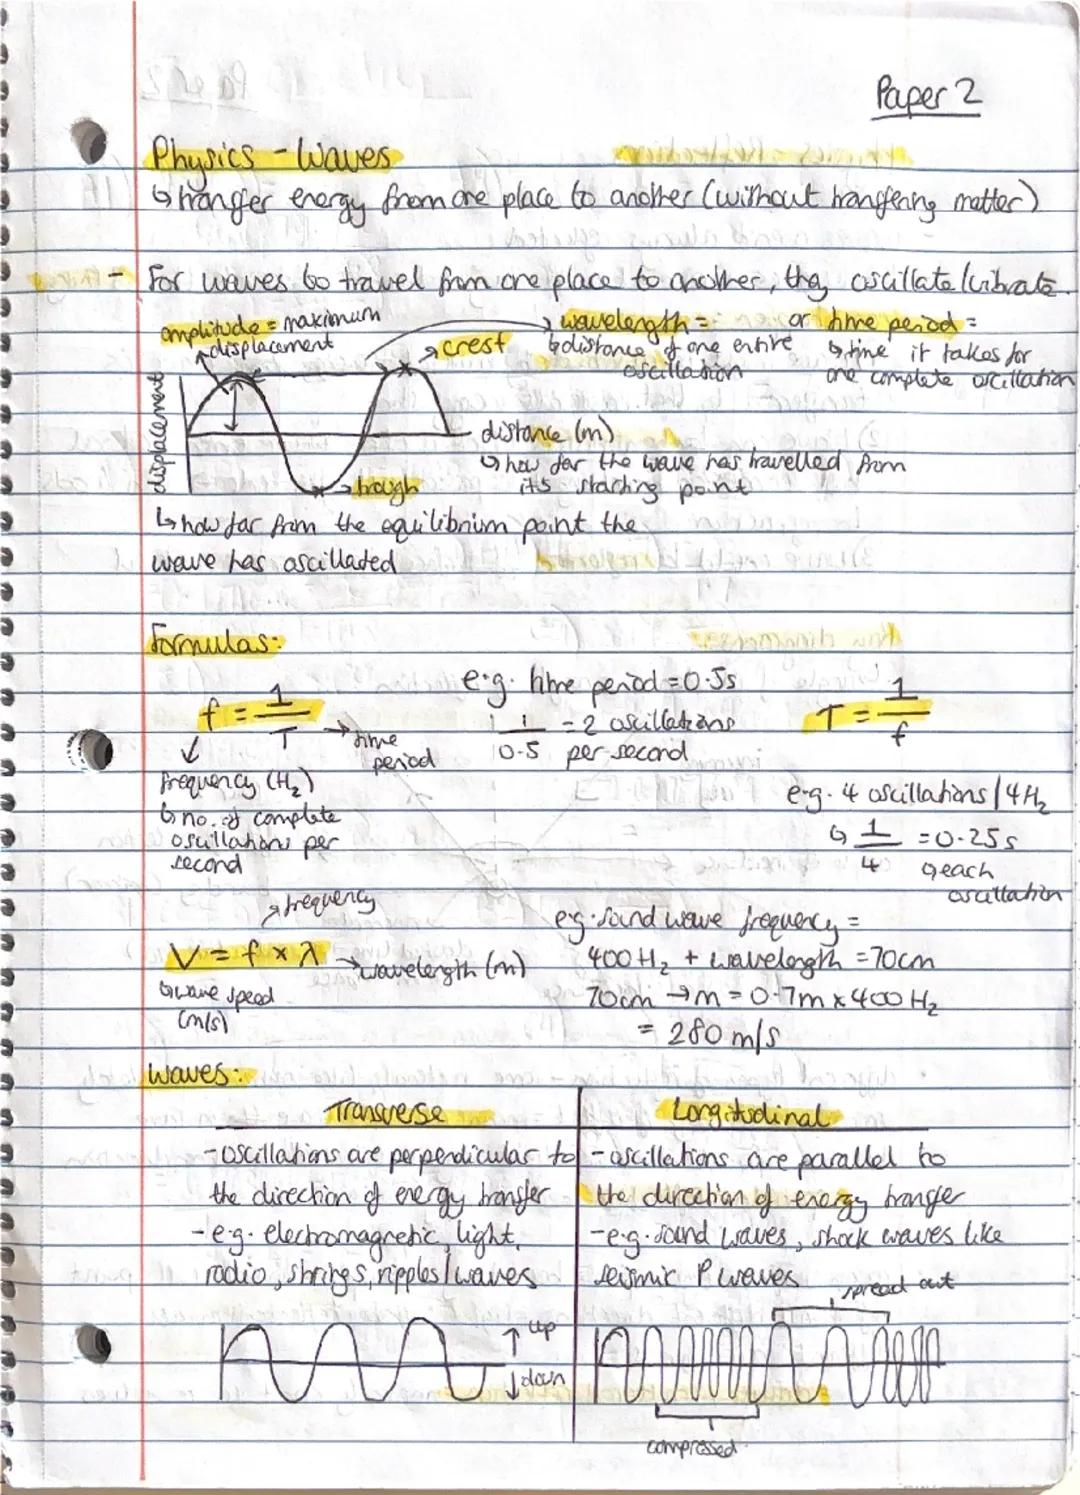 Paper 2
Physics - Waves
↳ transfer energy from one place to another (without transfering matter)
- For waves to travel from one place to another, they oscillate/vibrate.
amplitude = maximum
displacement
crest
wavelength =
↳ distance of one entire
oscillation
or time period =
↳ time it takes for
one complete oscillation
displacement
distance (m)
↳ how far the wave has travelled from
its starting point
trough
↳ how far from the equilibrium point the
wave has oscillated
Formulas:
f = 1/T → time period
frequency (Hz)
↳ no. of complete
oscillations per
second
e.g. time period = 0.5s
1/0.5 = 2 oscillations
per second
T = 1/f
e.g. 4 oscillations / 4Hz
↳ 1/4 = 0.25s
↳ each
oscillation
frequency
V = f x λ → wavelength (m)
↳ wave speed
(m/s)
e.g. sound wave frequency =
400 Hz + wavelength = 70cm
70cm → m = 0.7m x 400 Hz
= 280 m/s
Waves:
Transverse
- oscillations are perpendicular to
the direction of energy transfer
- e.g. electromagnetic, light,
radio, strings, ripples/waves
up
down
Longitudinal
- oscillations are parallel to
the direction of energy transfer
- e.g. sound waves, shock waves like
seismic P waves
spread out
compressed